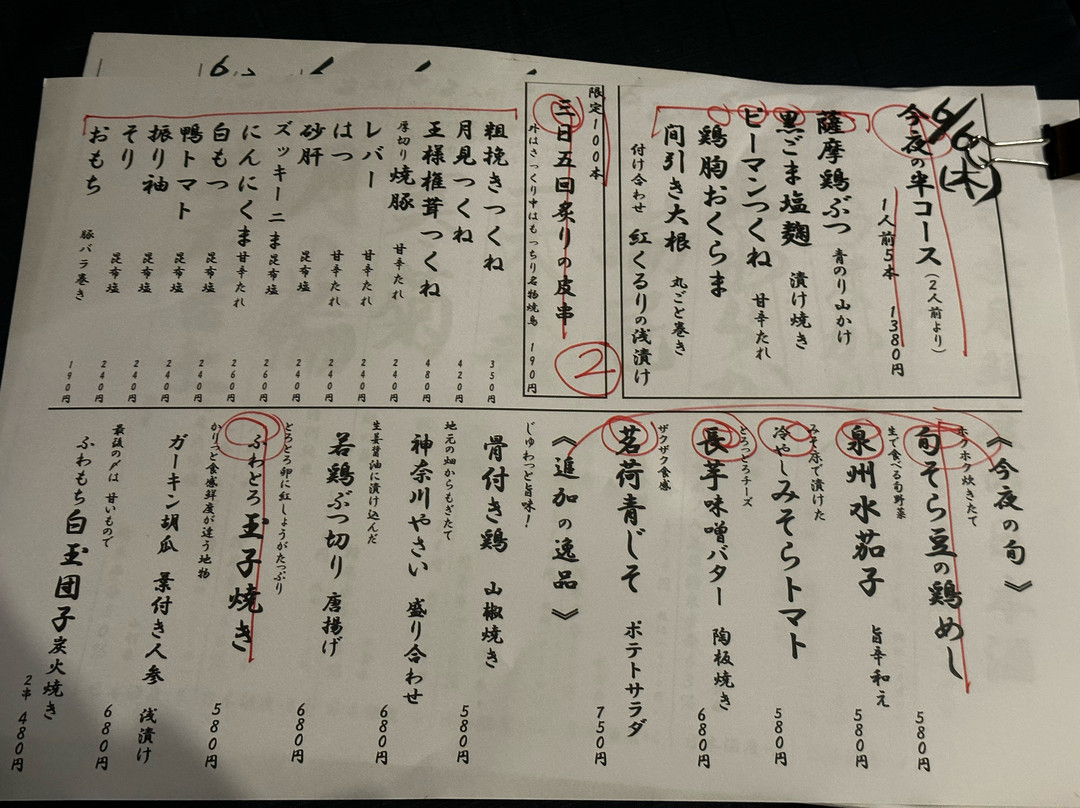 6/6(木)
今夜の串コース(2人前より)
1人前5本 1380円
薩摩鶏ぶつ 青のり山かけ
黒ごま塩麹 漬け焼き
ピーマンつくね 甘辛たれ
鶏胸おくらま
間引き大根 丸ごと巻き
付け合わせ 紅くるりの浅漬け
限定100本
三日五回炙りの皮串
外はさっくり中はもっちり名物焼鳥 190円
2
粗挽きつくね 350円
月見つくね 420円
王様椎茸つくね 480円
厚切り焼豚 甘辛たれ 240円
レバー 甘辛たれ 240円
はつ 甘辛たれ 240円
砂肝 昆布塩 240円
ズッキーニま 昆布塩 260円
にんにくま 甘辛たれ 260円
白もつ 昆布塩 240円
鴨トマト 昆布塩 240円
振り袖 昆布塩 240円
そり 昆布塩 240円
おもち 豚バラ巻き 190円
《今夜の旬》
ホクホク炊きたて
旬そら豆の鶏めし 580円
生で食べる旬野菜
泉州水茄子 旨辛和え 580円
みそ床で漬けた
冷やしみそらトマト 580円
とろっとろチーズ
長芋味噌バター 陶板焼き 680円
ザクザク食感
茗荷青じそ ポテトサラダ 750円
《追加の逸品》
じゅわっと旨味!
骨付き鶏 山椒焼き 580円
地元の畑からもぎたて
神奈川やさい 盛り合わせ 680円
生姜醤油に漬け込んだ
若鶏ぶつ切り 唐揚げ 680円
とろとろ卵に紅しょうがたっぷり
ふわとろ玉子焼き 580円
かりっと食感鮮度が違う地物
ガーキン胡瓜 葉付き人参 浅漬け 680円
最後の〆は 甘いもので
ふわもち白玉団子炭火焼き 2串 480円